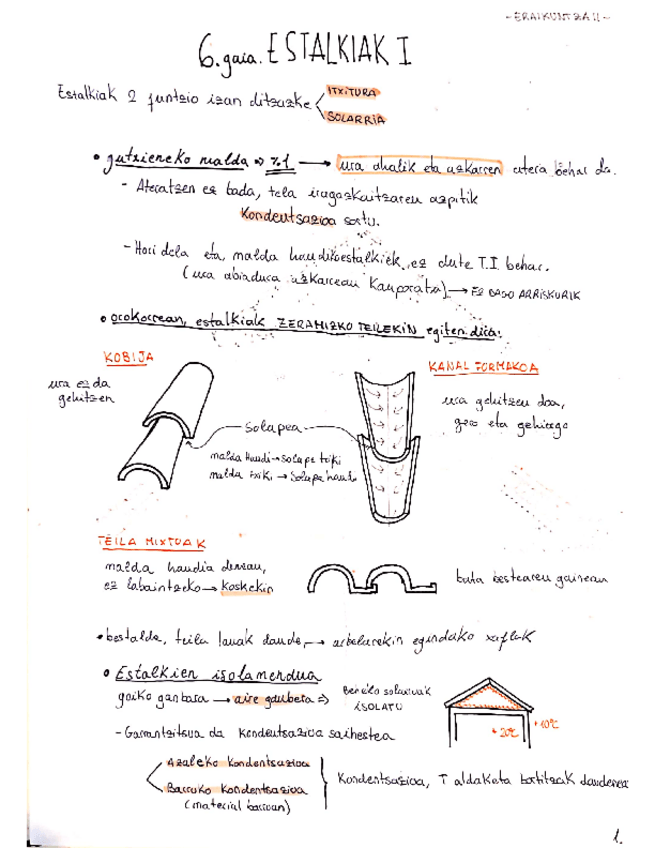 - ERAIKUNTZA II -
6. gaia. ESTALKIAK I
Estalkiak 2 funtzio izan ditzazke
ITXITURA
SOLARRIA
• gutxieneko malda => %1 → ura ahalik eta azkarren atera behar da.
- Ateratzen ez bada, tela iragazkaitzaren azpitik
Kondentsazioa sortu.
- Hori dela eta, malda handiko estalkiek ez dute T.I. behar.
(ura abiadura azkarrean kanporatza) → EZ DAGO ARRISKURIK
• orokorrean, estalkiak ZERAMIZKO TEILEKIN egiten dira.
KOBIJA
KANAL FORMAKOA
ura ez da
gehitzen
ura gehitzen doa,
gero eta gehiago
Solapea
malda handi → solape txiki
malda txiki → solape handi
TEILA MIXTOAK
malda handia denean,
ez labaintzeko → koskekin
bata bestearen gainean
• bestalde, teila lauak daude, → arbelarekin egindako xaflak
• Estalkien isolamendua
goiko ganbara → aire ganbera =>
Beheko solairuak
ISOLATU
+20ºC
+10ºC
- Garrantzitsua da kondentsazioa saihestea
Azaleko kondentsazioa
Barruko kondentsazioa
(material barruan)
Kondentsazioa, T aldaketa bortitzak daudenea
1.